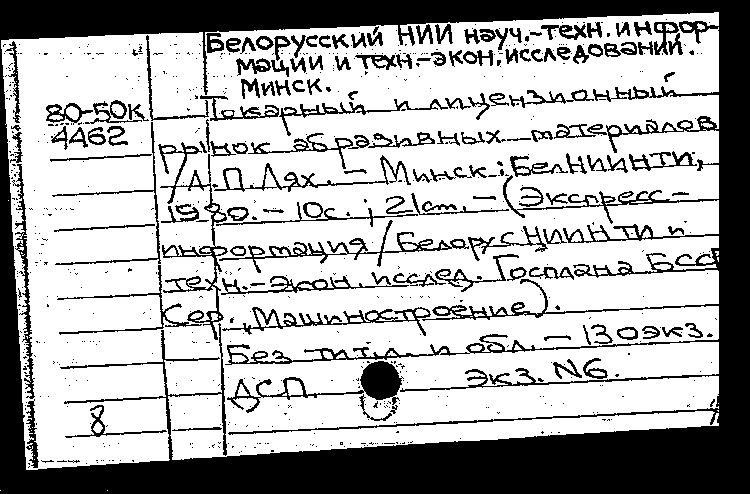 Белорусский НИИ науч.-техн. инфор-
мации и техн.-экон. исследований.
Минск.
80-50к
4462
Токарный и лицензионный
рынок абразивных материалов
/А.П.Лях. - Минск: БелНИИНТИ,
1980. - 10с.; 21cm. - (Экспресс-
информация/Белорус НИИНТИ и
техн.-экон. исслед. Госплана БССР
Сер. „Машиностроение).
Без тит.л. и обл. - 130экз.
ДСП. экз. N6.
8